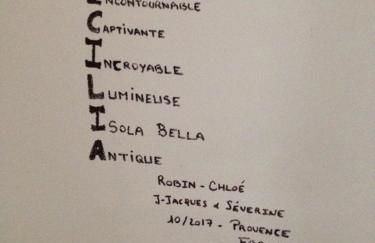 INCONTOURNABLE
CAPTIVANTE
INCROYABLE
LUMINEUSE
ISOLA BELLA
ANTIQUE
ROBIN - CHLOÉ
J-JACQUES & SÉVERINE
10/2017 - PROVENCE